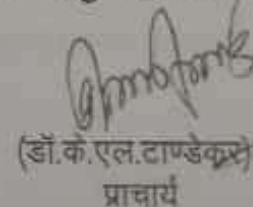 (डॉ.के.एल.टाण्डेकर)
प्राचार्य